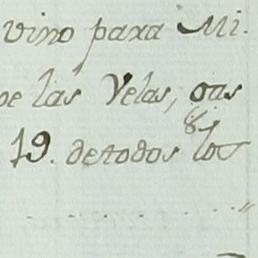 vino para Mi.
de las Velas, gas
19. de todos los